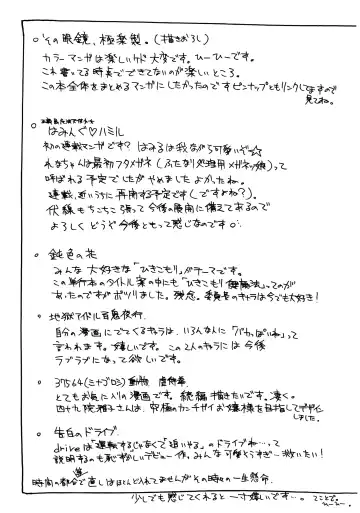 ○その眼鏡、極楽製。(描きおろし)
カラーマンガは楽しいケド 大変です。ひーひーです。
これ書いてる時点でできてないのが楽しいところ。
この本全体をまとめるマンガにしたかったのでピンナップともリンクしてますので
見てね。
はみんぐ♡ハミル
初の連載マンガです? はみるは我ながら可愛いゾ☆
れなちゃんは最初フタメガネ(ふたなり処理用メガネッ娘)って
呼ばれる予定でしたがやめました よかったね。
連載、近いうちに再開する予定です(ですよね?)。
伏線もちこちこ張って今後の展開に備えてあるので
よろしくどうぞ今後とも って感じなのです。
○鈍色の花
みんな大好きな「ひきこもり」がテーマです。
この単行本のタイトル案の中にも「ひきこもり健康法」ってのが
あったのですがボツりました。残念。委員長のキャラは今でも大好き!
○地獄アイドル百鬼夜行
自分の漫画にでてくるキャラは、いろんな人に「バカっぽいね」って
言われます。嬉しいです。この2人のキャラには今後
ラブラブになって欲しいです。
○37564(ミナゴロシ)動物 虐待業
とてもお気に入りの漫画です。続編描きたいです。凄く。
四十九院雅子さんは、究極のカンチガイお嬢様を目指してデザイン
しました。
○告白のドライブ
driveは「運転するじゃなくて追いやる」のドライブね…って
説明するのも恥ずかしいデビュー作。みんな可愛そうすぎー救いたい!
時間の都合で直しはほとんどいれてませんがその時々の一生懸命、
少しでも感じてくれると一寸嬉しいです…。てことで。